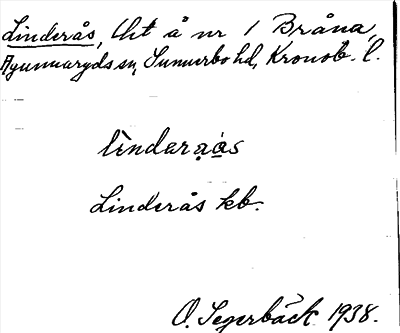 Linderås, lht å nr 1 Bråna,
Agunnaryds sn, Sunnerbo hd, Kronob. l.
lìndaṛa̱ås
Linderås kb.
O. Segerbäck 1938.